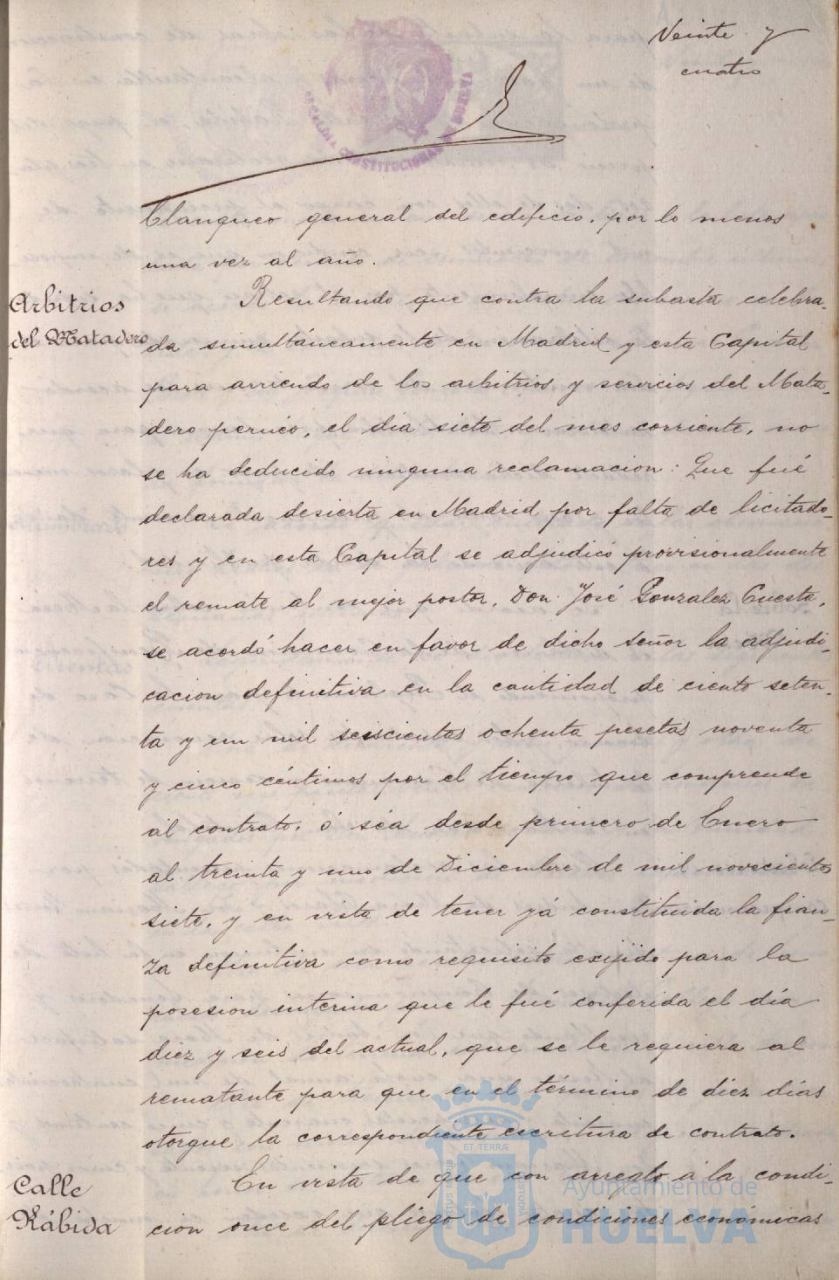 Veinte y
cuatro
ALCALDIA CONSTITUCIONAL DE HUELVA
blanqueo general del edificio, por lo menos
una vez al año.
Arbitrios
del Matadero
Resultando que contra la subasta celebra-
da simultáneamente en Madrid y esta Capital
para arriendo de los arbitrios y servicios del Mata-
dero pernéo, el día siete del mes corriente, no
se ha deducido ninguna reclamacion: Que fué
declarada desierta en Madrid por falta de licitado-
res y en esta Capital se adjudicó provisionalmente
el remate al mejor postor, Don José Gonzalez Cuesta,
se acordó hacer en favor de dicho señor la adjudi-
cacion definitiva en la cantidad de ciento seten-
ta y un mil seiscientas ochenta pesetas noventa
y cinco céntimos por el tiempo que comprende
al contrato, ó séa desde primero de Enero
al treinta y uno de Diciembre de mil novecientos
siete, y en vista de tener yá constituida la fian-
za definitiva como requisito exijido para la
posesion interina que le fué conferida el día
diez y seis del actual, que se le requiera al
rematante para que en el término de diez días
otorgue la correspondiente escritura de contrato.
Calle
Rábida
En vista de que con arreglo á la condi-
cion once del pliego de condiciones económicas
Ayuntamiento de
HUELVA